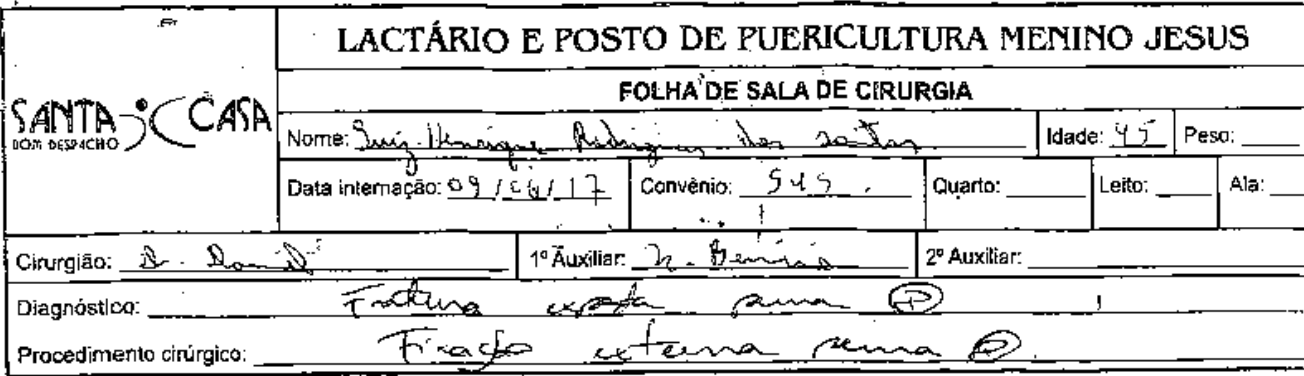 LACTÁRIO E POSTO DE PUERICULTURA MENINO JESUS
SANTA CASA
DOM DESPACHO
FOLHA DE SALA DE CIRURGIA
Nome: Luiz Henrique Rodrigues dos Santos Idade: 45 Peso:
Data internação: 09/06/17 Convênio: SUS Quarto: Leito: Ala:
Cirurgião: Dr. 1º Auxiliar: 2º Auxiliar:
Diagnóstico: Fratura exposta perna D
Procedimento cirúrgico: Fixação externa perna D